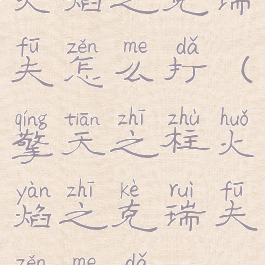 火焰之克瑞
fū zěn me dǎ
夫怎么打（
qíng tiān zhī zhù huǒ
擎天之柱火
yàn zhī kè ruì fū
焰之克瑞夫
zěn me dǎ